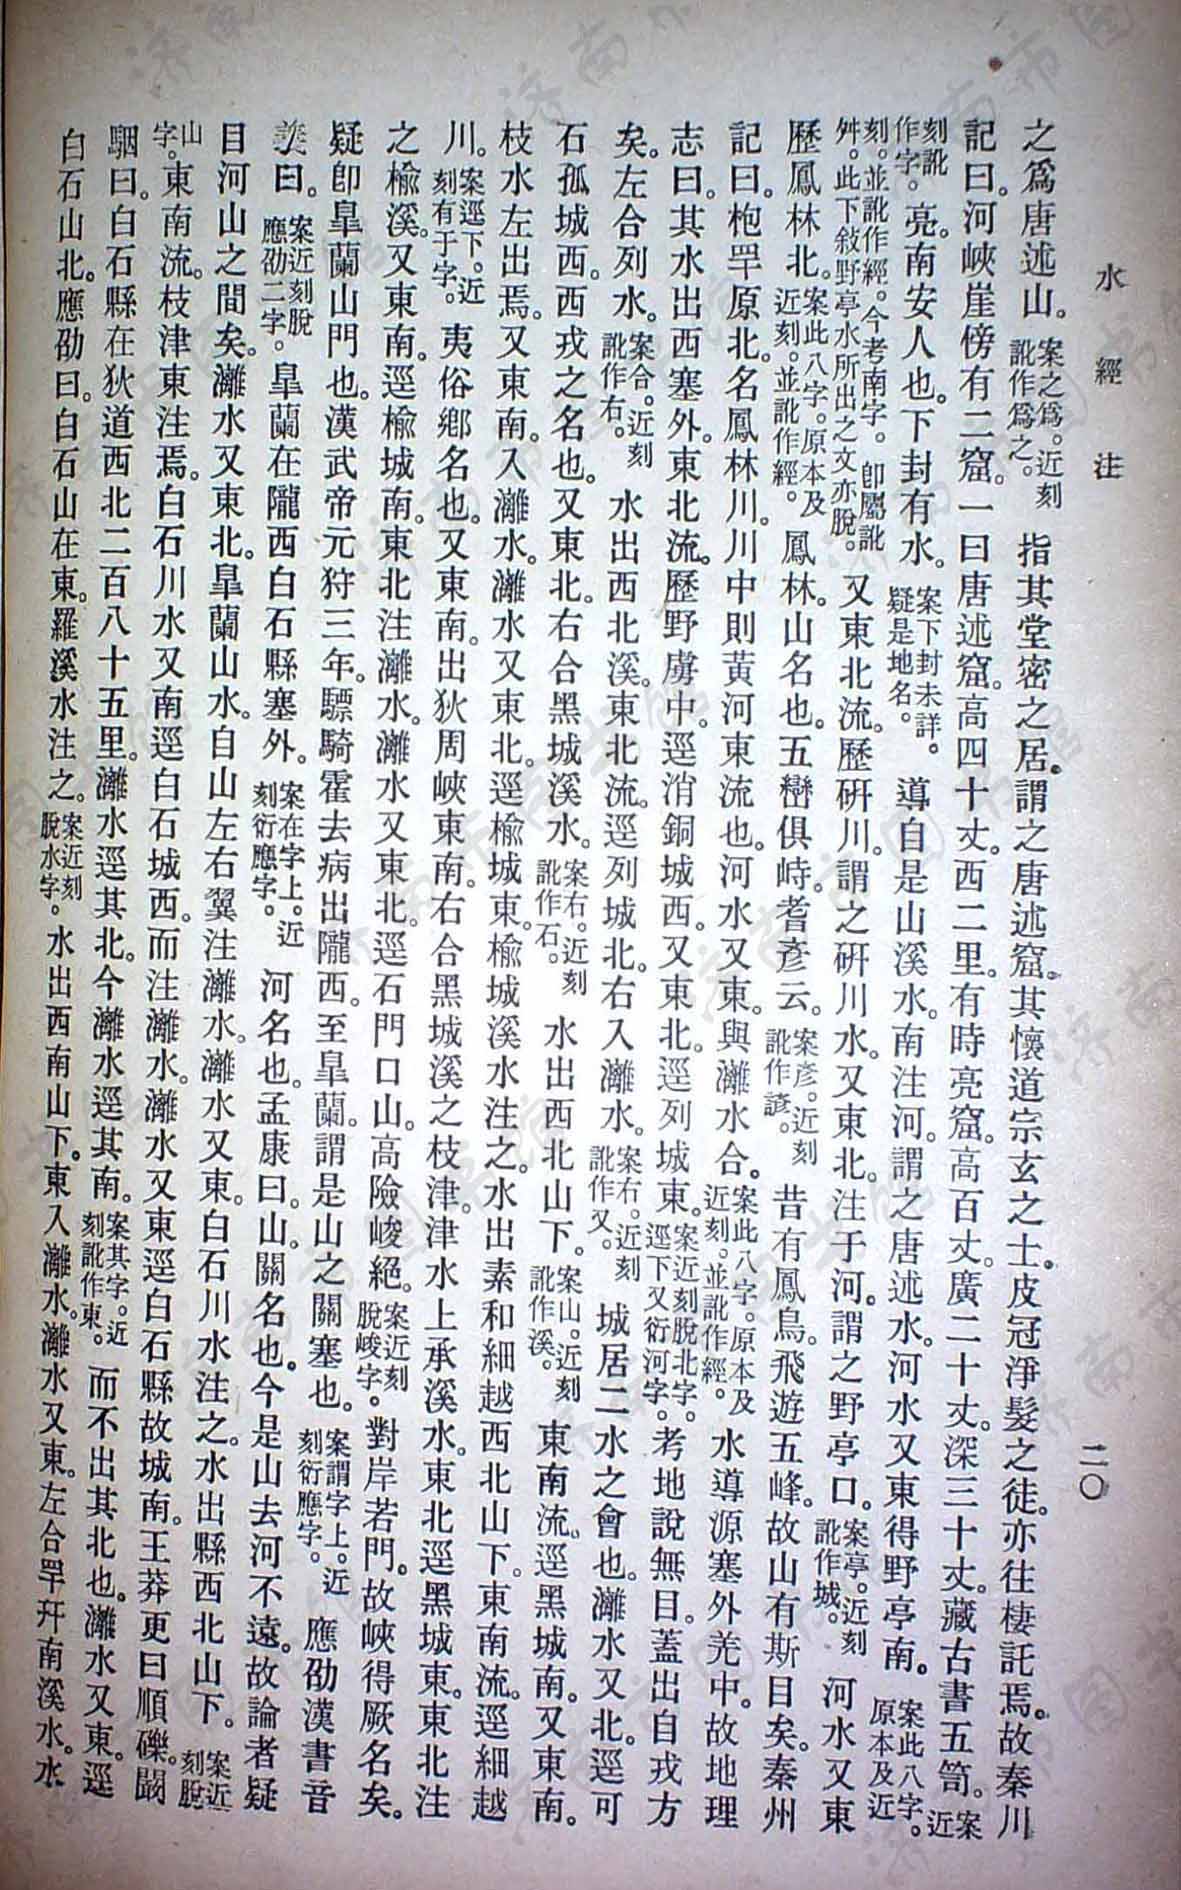 水經注
二〇
之爲唐述山。案之爲。近刻訛作爲之。指其堂密之居。謂之唐述窟。其懷道宗玄之士。皮冠淨髮之徒。亦往棲託焉。故秦川
記曰。河峽崖傍有二窟。一曰唐述窟。高四十丈。西二里。有時亮窟。高百丈。廣二十丈。深三十丈。藏古書五笥。案近
刻訛作字。亮。南安人也。下封有水。案下封未詳。疑是地名。導自是山溪水。南注河。謂之唐述水。河水又東得野亭南。案此八字。原本及近
刻。並訛作經。今考南字。卽屬訛舛。此下敍野亭水所出之文亦脫。又東北流。歷研川。謂之研川水。又東北。注于河。謂之野亭口。案亭。近刻訛作城。河水又東
歷鳳林北。案此八字。原本及近刻。並訛作經。鳳林。山名也。五巒俱峙。耆彥云。案彥。近刻訛作諺。昔有鳳鳥。飛遊五峰。故山有斯目矣。秦州
記曰。枹罕原北。名鳳林川。川中則黃河東流也。河水又東。與灕水合。案此八字。原本及近刻。並訛作經。水導源塞外羌中。故地理
志曰。其水出西塞外。東北流。歷野虜中。逕消銅城西。又東北。逕列城東。案近刻脫北字。逕下又衍河字。考地說無目。蓋出自戎方
矣。左合列水。案合。近刻訛作右。水出西北溪。東北流。逕列城北。右入灕水。案右。近刻訛作又。城居二水之會也。灕水又北。逕可
石孤城西。西戎之名也。又東北。右合黑城溪水。案右。近刻訛作石。水出西北山下。案山。近刻訛作溪。東南流。逕黑城南。又東南。
枝水左出焉。又東南。入灕水。灕水又東北。逕榆城東。榆城溪水注之。水出素和細越西北山下。東南流。逕細越
川。案逕下。近刻有于字。夷俗鄉名也。又東南。出狄周峽東南。右合黑城溪之枝津。津水上承溪水。東北逕黑城東。東北注
之榆溪。又東南。逕榆城南。東北注灕水。灕水又東北。逕石門口山。高險峻絕。案近刻脫峻字。對岸若門。故峽得厥名矣。
疑卽臯蘭山門也。漢武帝元狩三年。驃騎霍去病出隴西。至臯蘭。謂是山之關塞也。案謂字上。近刻衍應字。應劭漢書音
義曰。案近刻脫應劭二字。臯蘭在隴西白石縣塞外。案在字上。近刻衍應字。河名也。孟康曰。山。關名也。今是山去河不遠。故論者疑
目河山之間矣。灕水又東北。臯蘭山水。自山左右翼注灕水。灕水又東。白石川水注之。水出縣西北山下。案近刻脫
山字。東南流。枝津東注焉。白石川水又南逕白石城西。而注灕水。灕水又東逕白石縣故城南。王莽更曰順礫。闞
駰曰。白石縣在狄道西北二百八十五里。灕水逕其北。今灕水逕其南。案其字。近刻訛作東。而不出其北也。灕水又東。逕
白石山北。應劭曰。白石山在東。羅溪水注之。案近刻脫水字。水出西南山下。東入灕水。灕水又東。左合罕幵南溪水。水